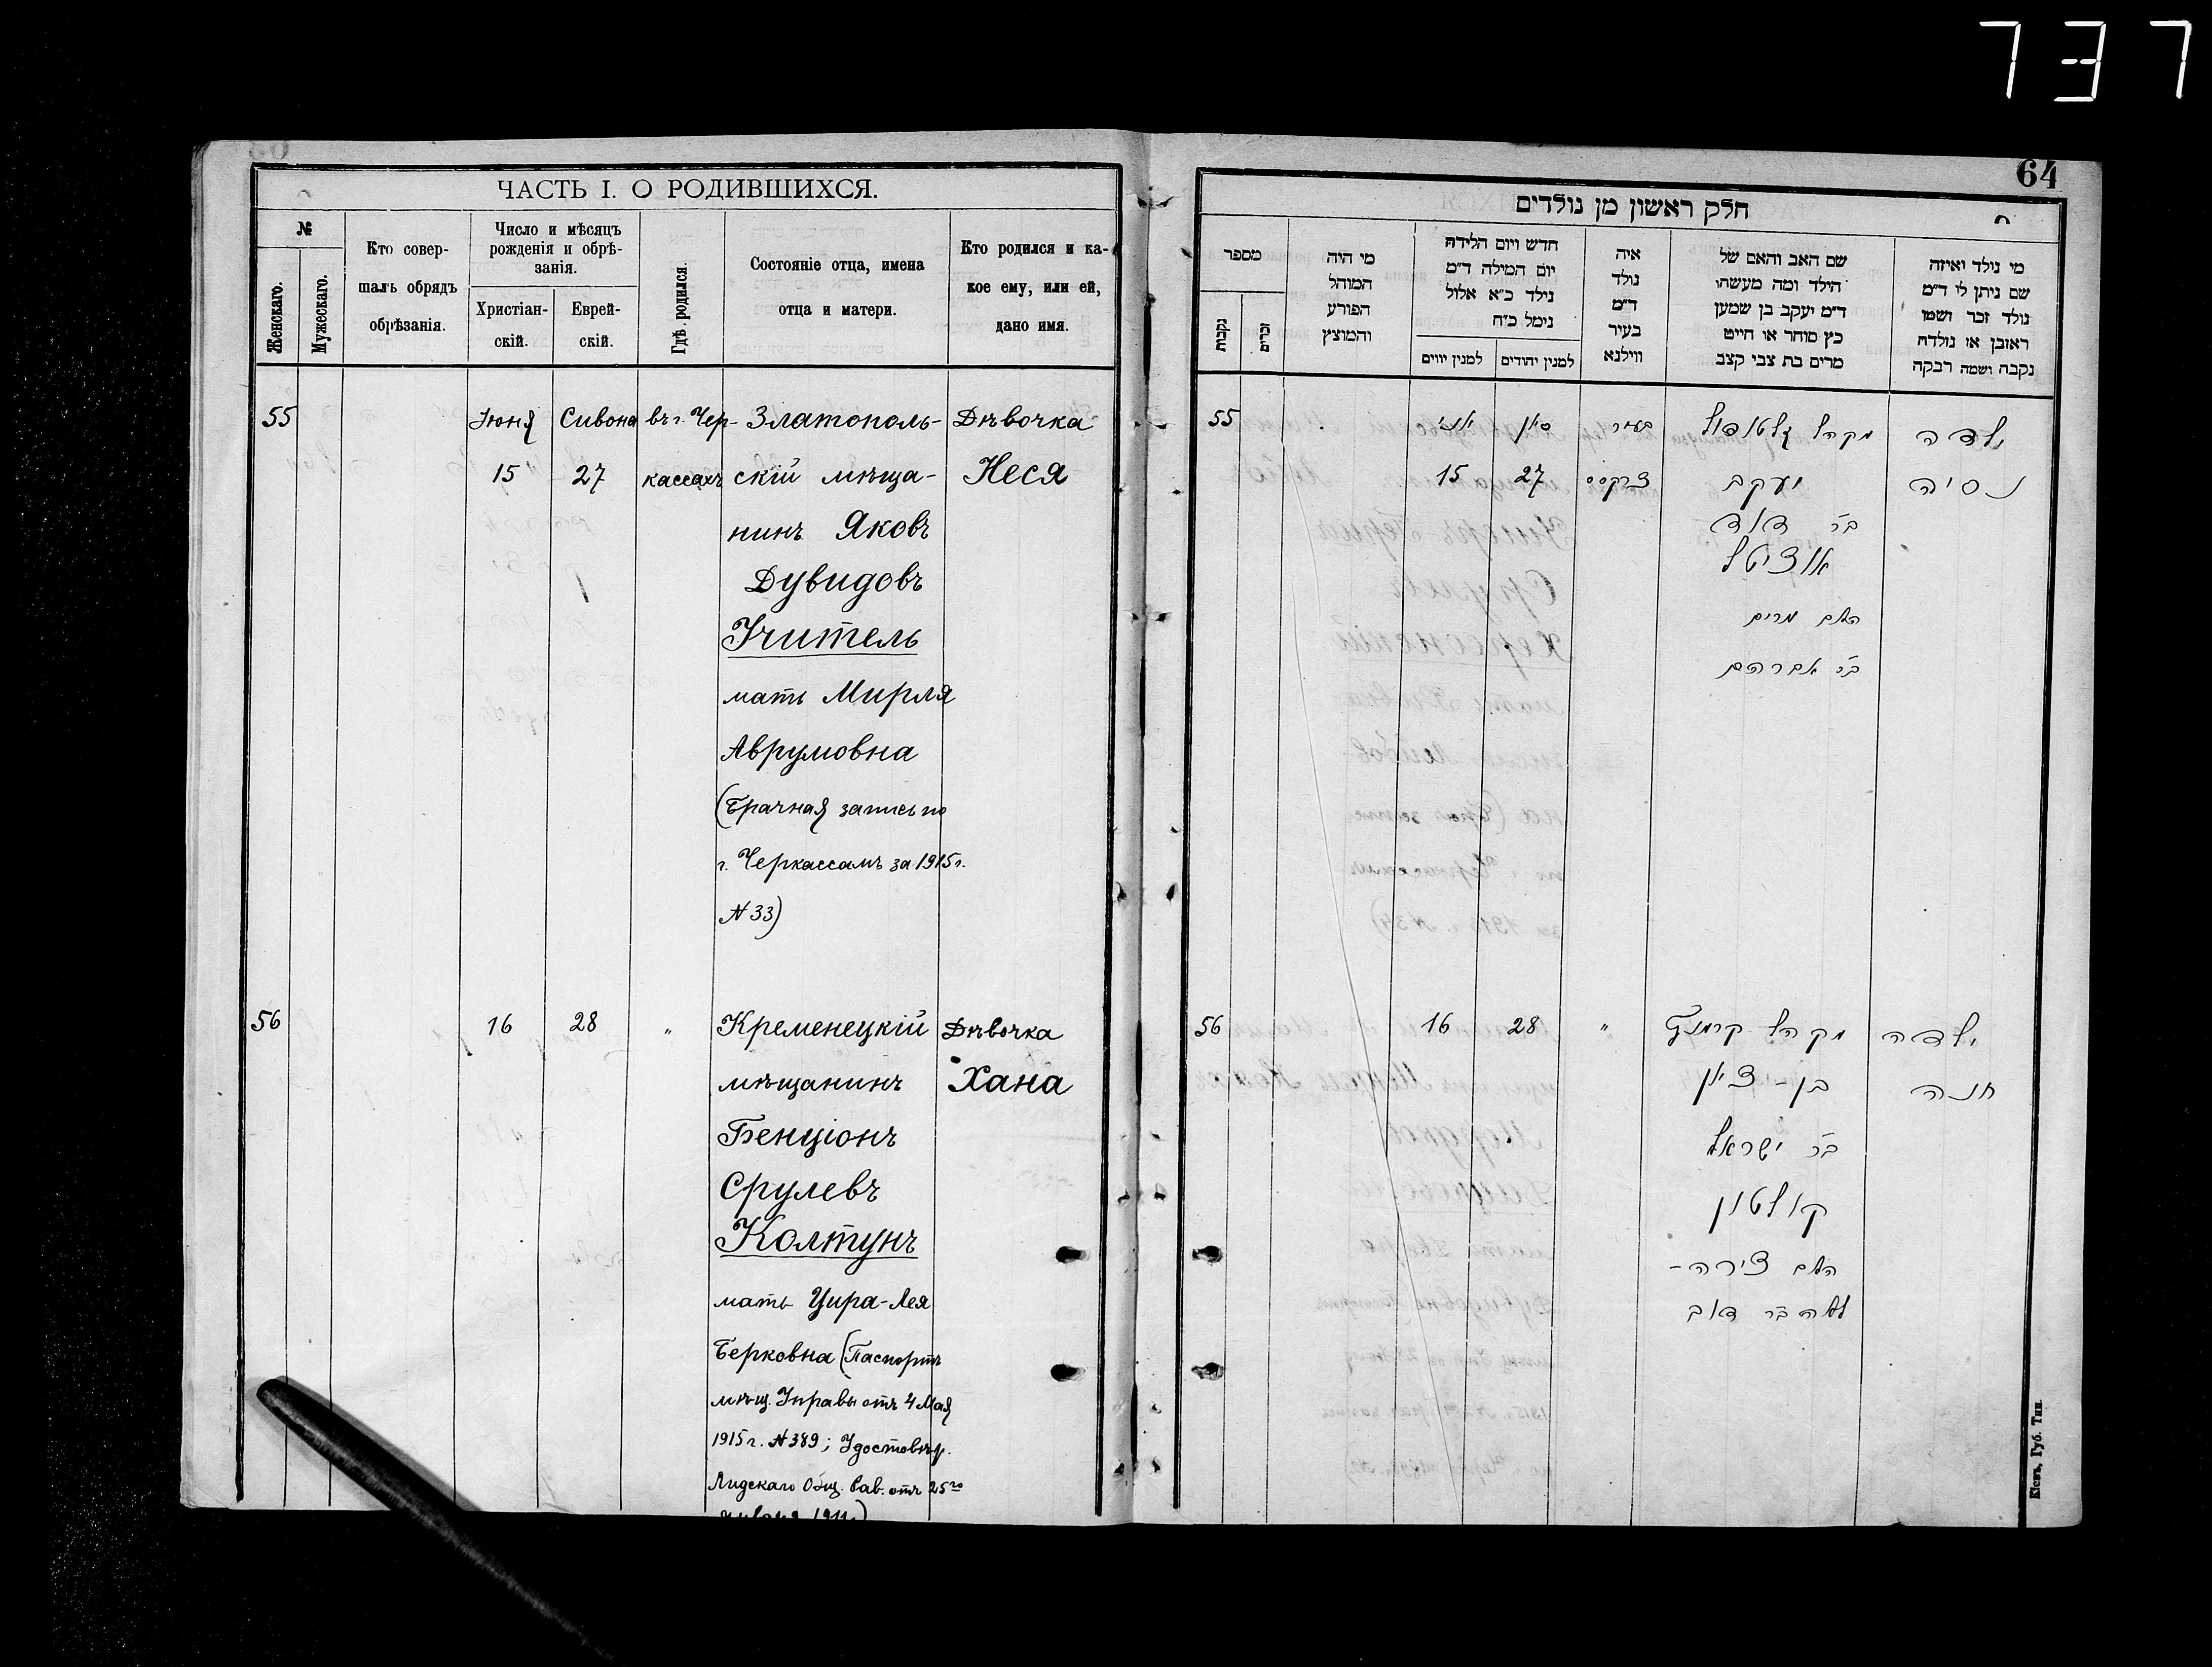 737
64
ЧАСТЬ I. О РОДИВШИХСЯ.
№
Женскаго.
Мужескаго.
Кто совер-
шалъ обрядъ
обрѣзанія.
Число и мѣсяцъ
рожденія и обрѣ-
занія.
Христіан-
скій.
Еврей-
скій.
Гдѣ родился.
Состояніе отца, имена
отца и матери.
Кто родился и ка-
кое ему, или ей,
дано имя.
55 Іюня Сивона въ г. Чер- Златополь- Дѣвочка
15 27 кассахъ скій мѣща- Неся
нинъ Яковъ
Дувидовъ
Учитель
мать Мирля
Аврумовна
(Брачная запись по
г. Черкассамъ за 1915 г.
N 33)
56 16 28 „ Кременецкій Дѣвочка
мѣщанинъ Хана
Бенціонъ
Срулевъ
Колтунъ
мать Цира-Лея
Берковна (Паспортъ
мѣщ. Управы отъ 4 Мая
1915 г. N 389; Удостовѣр.
Лидскаго Общ. Рав. отъ 25го
חלק ראשון מן נולדים
מספר
נקבות
זכרים
מי היה
המוהל
הפורע
והמוצץ
חדש ויום הלידה
יום המילה ד״מ
נילד כ״א אלול
נימל כ״ח
למנין יווים
למנין יהודים
איה
נולד
ד״מ
בעיר
ווילנא
שם האב והאם של
הילד ומה מעשהו
ד״מ יעקב בן שמען
כץ סוחר או חייט
מרים בת צבי קצב
מי נילד ואיזה
שם ניתן לי ד״מ
נולד זכר ושמו
ראובן או נולדה
נקבה ושמה רבקה
55 יוני סיון בעיר מקהל זלטאפול ילדה
15 27 צרקסס יעקב נסיה
בר דוד
אוציטל
האם מרים
בר אברהם
56 16 28 „ מקהל קרמנץ ילדה
בן-ציון חנה
בר ישראל
קולטון
האם צירה-
לאה בר דוב
Кіевъ, Губ. Тип.